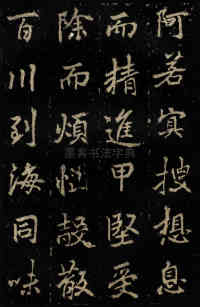 阿若宾搜想息
而精進甲堅受
除而煩惱懿散
百川到海同味
墨客书法字典